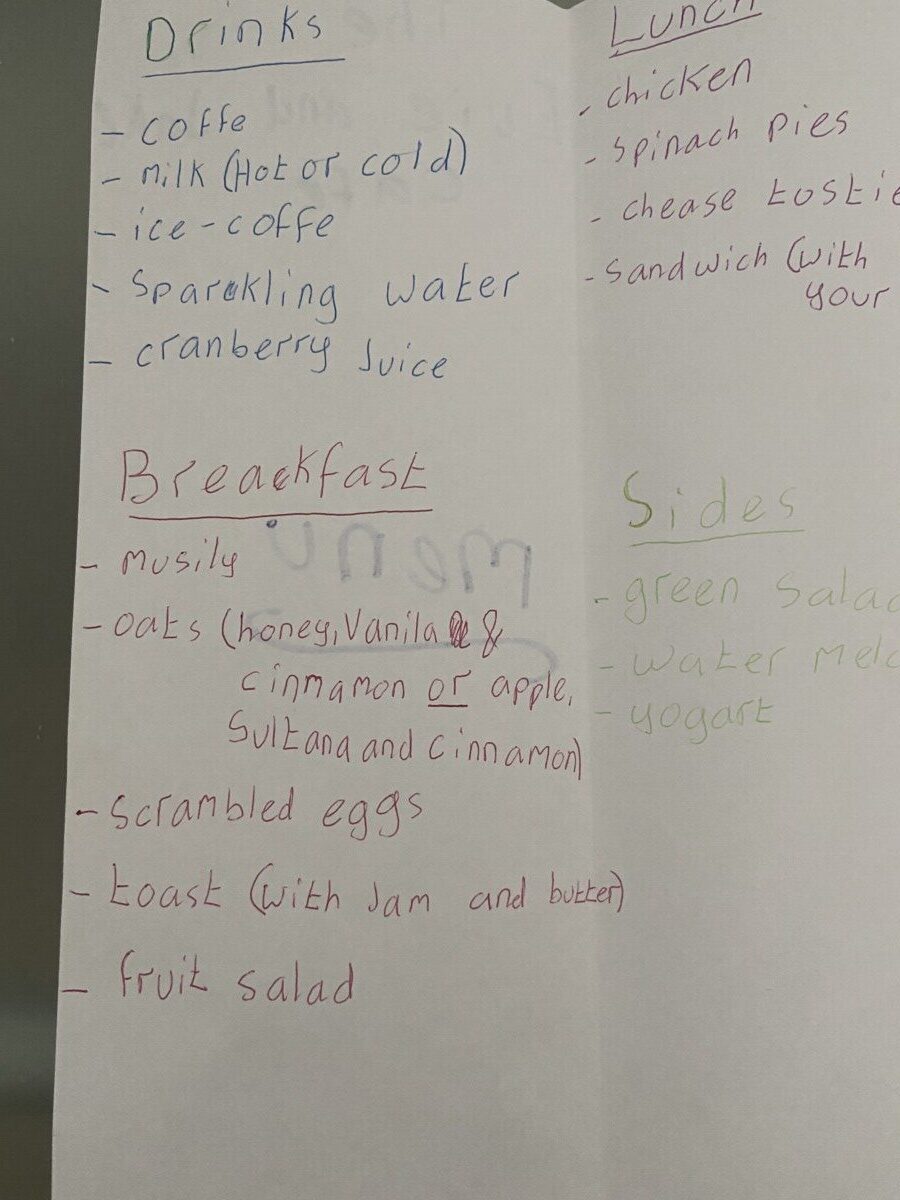 Drinks
- coffe
- milk (Hot or cold)
- ice-coffe
- Sparkling water
- cranberry Juice
Breackfast
- musily
- oats (honey, Vanila &
cinnamon or apple,
Sultana and cinnamon)
- scrambled eggs
- toast (with Jam and butter)
- fruit salad
Lunch
- chicken
- spinach pies
- chease tostie
- sandwich (with
your
Sides
- green salad
- water melo
- yogart
menu
The